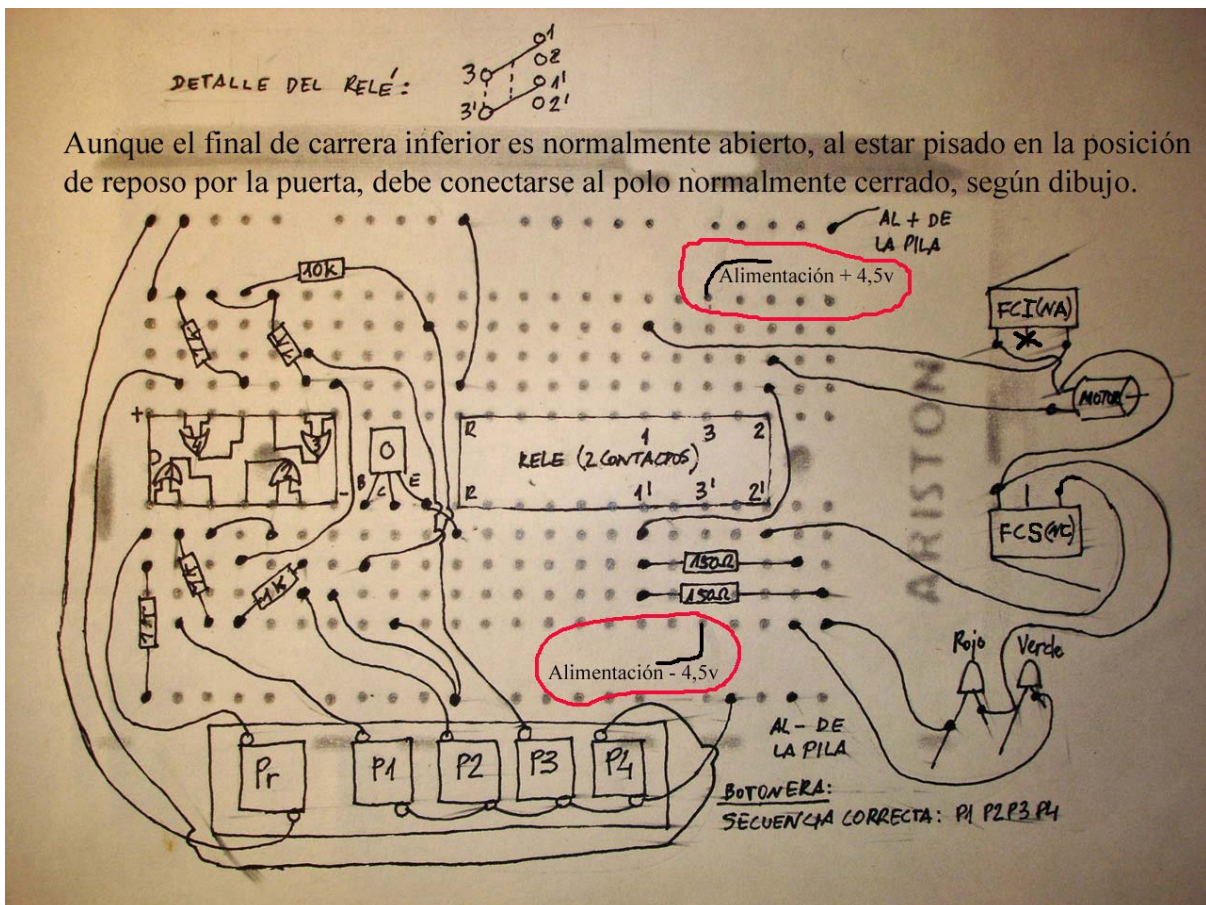 DETALLE DEL RELÉ:
1
3 2
1'
3' 2'
Aunque el final de carrera inferior es normalmente abierto, al estar pisado en la posición
de reposo por la puerta, debe conectarse al polo normalmente cerrado, según dibujo.
AL + DE
LA PILA
10K
Alimentación + 4,5v
FCI(NA)
1K 1K
MOTOR
ARISTON
+ 4 3
R 1 3 2
RELE (2 CONTACTOS)
B C E
-
R 1' 3' 2'
FCS(NC)
150Ω
1K 1K
150Ω
1K
Rojo Verde
Alimentación - 4,5v
Pr P1 P2 P3 P4
AL - DE
LA PILA
BOTONERA:
SECUENCIA CORRECTA: P1 P2 P3 P4